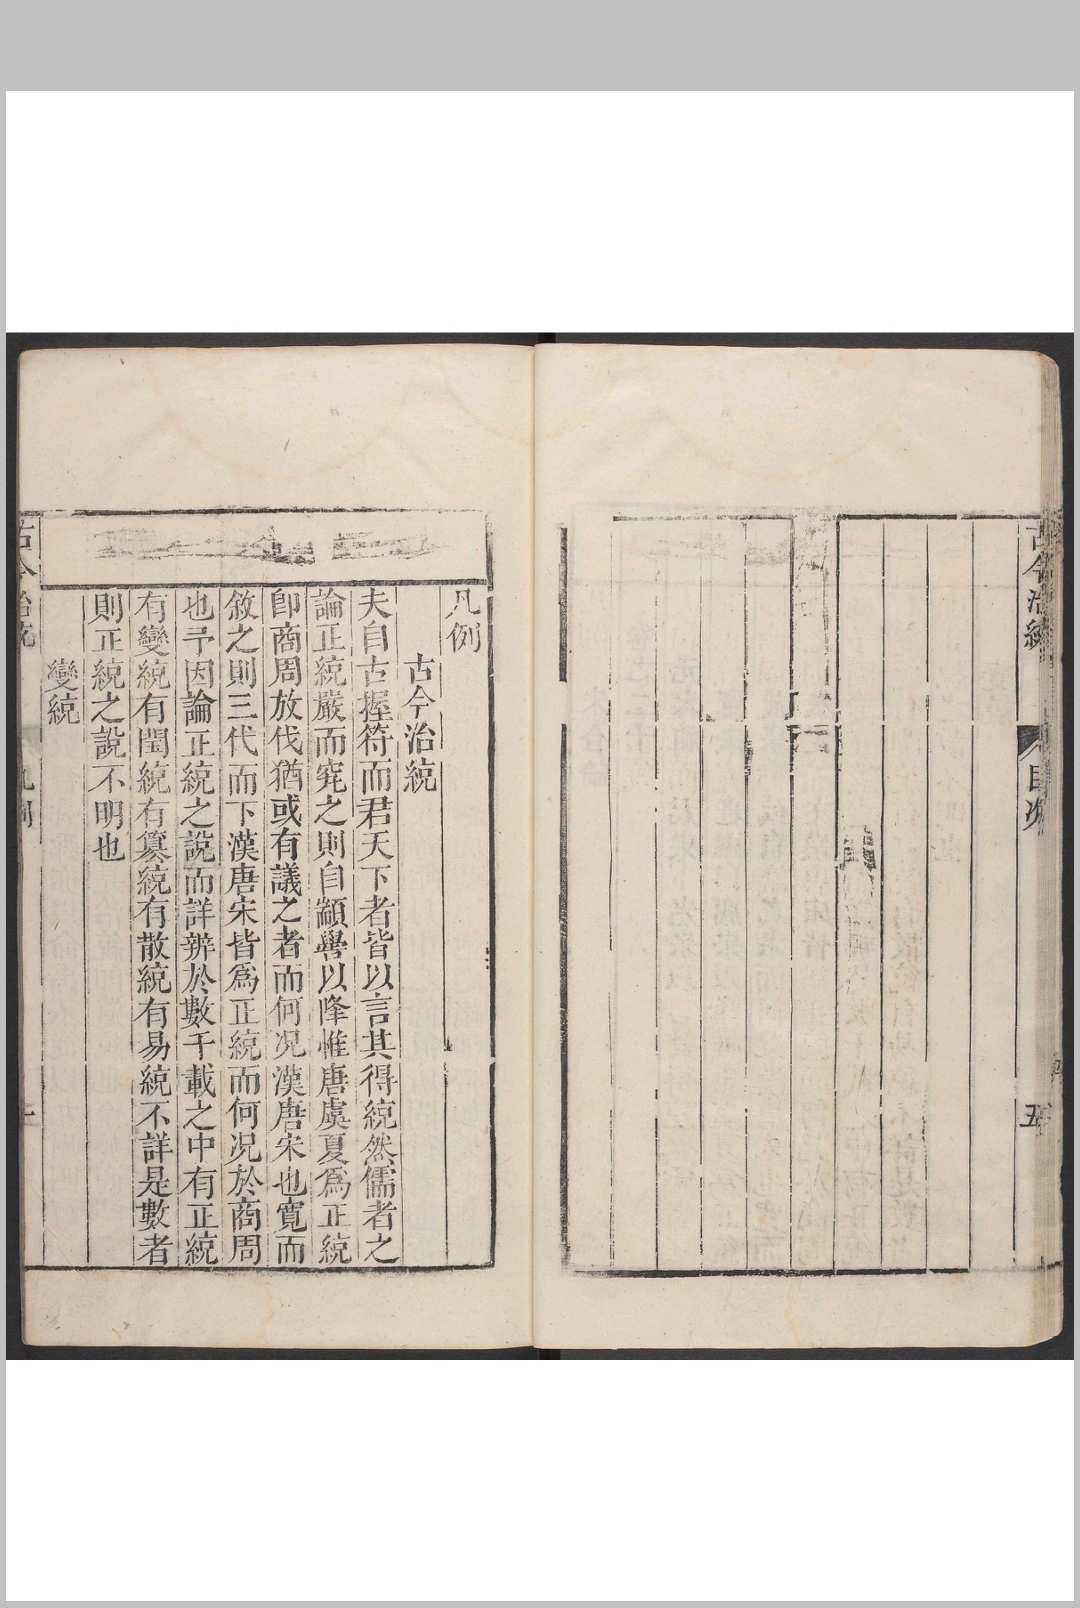 古今治統
目次
五
凡例
古今治統
夫自古握符而君天下者皆以言其得統然儒者之
論正統嚴而究之則自顓嚳以降惟唐虞夏爲正統
卽商周放伐猶或有議之者而何况漢唐宋也寬而
敘之則三代而下漢唐宋皆爲正統而何况於商周
也予因論正統之說而詳辨於數千載之中有正統
有變統有閏統有篡統有散統有易統不詳是數者
則正統之說不明也
變統
古今治統
凡例
一